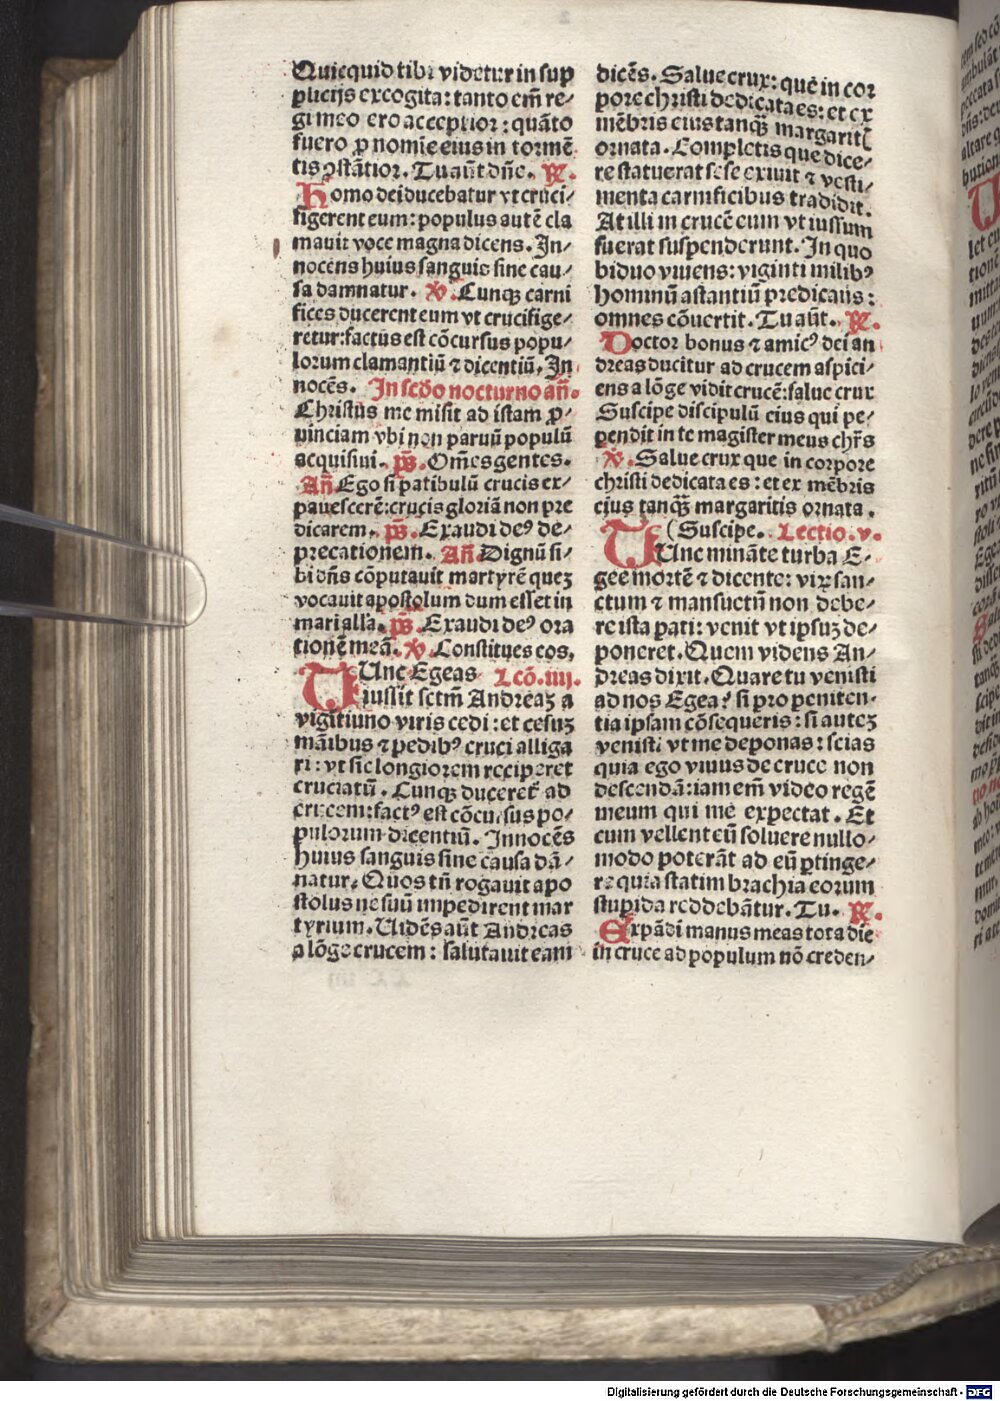 Quicquid tibi videtur in sup
plicijs excogita: tanto em̃ re⸗
gi meo ero acceptior: quãto
fuero ꝓ nomĩe eius in tormẽ
tis ꝯstãtior. Tu aũt dñe. ℟.
Homo dei ducebatur vt cruci⸗
figerent eum: populus autẽ cla
mauit voce magna dicens. In⸗
nocens huius sanguis sine cau⸗
sa damnatur. ℣. Cunqꝫ carni
fices ducerent eum vt crucifige⸗
retur: factus est cõcursus popu⸗
lorum clamantiũ ⁊ dicentiũ, In
nocẽs. In scðo nocturno añ.
Christus me misit ad istam ꝓ⸗
uinciam vbi non paruũ populũ
acquisiui. p̃s. Om̃es gentes.
Añ. Ego si patibulũ crucis ex⸗
pauescerẽ: crucis gloriã non pre
dicarem. p̃s. Exaudi deꝰ de⸗
precationem. Añ. Dignũ si⸗
bi dñs cõputauit martyrẽ quez
vocauit apostolum dum esset in
mari alľa. p̃s. Exaudi deꝰ ora
tionẽ meã. ℣. Constitues eos,
TUnc Egeas Lcõ. iiij.
iussit sctm̃ Andreaz a
vigitiuno viris cedi: et cesuz
mãibus ⁊ pedibꝰ cruci alliga
ri: vt sic longiorem reciperet
cruciatũ. Cunqꝫ duceret᷑ ad
crucem: factꝰ est cõcursus po⸗
pulorum dicentiũ. Innocẽs
huius sanguis sine causa dã⸗
natur. Quos tñ rogauit apo
stolus ne suũ impedirent mar
tyrium. Uidẽs aũt Andreas
a lõge crucem: salutauit eam
dicẽs. Salue crux: que in cor
pore christi dedicata es: et ex
mẽbris eius tanqꝫ̃ margaritꝭ
ornata. Completis que dice⸗
re statuerat sese exiuit ⁊ vesti⸗
menta carnificibus tradidit.
At illi in crucẽ eum vt iussum
fuerat suspenderunt. In quo
biduo viuens: viginti milibꝰ
hominũ astantiũ predicans:
omnes cõuertit. Tu aũt. ℟.
Doctor bonus ⁊ amicꝰ dei an
dreas ducitur ad crucem aspici⸗
ens a lõge vidit crucẽ: salue crux
Suscipe discipulũ eius qui pe⸗
pendit in te magister meus chr̃s
℣. Salue crux que in corpore
christi dedicata es: et ex mẽbris
eius tanqꝫ̃ margaritis ornata.
(Suscipe. Lectio. v.
TUnc minãte turba E⸗
gee mortẽ ⁊ dicente: vix san⸗
ctum ⁊ mansuetũ non debe⸗
re ista pati: venit vt ipsuz de⸗
poneret. Quem videns An⸗
dreas dixit. Quare tu venisti
ad nos Egea? si pro peniten⸗
tia ipsam cõsequeris: si autez
venisti vt me deponas: scias
quia ego viuus de cruce non
descendã: iam em̃ video regẽ
meum qui me expectat. Et
cum vellent eũ soluere nullo⸗
modo poterãt ad eũ ꝑtinge⸗
re quia statim brachia eorum
stupida reddebãtur. Tu. ℟.
Expãdi manus meas tota die
in cruce ad populum nõ creden⸗
Digitalisierung gefördert durch die Deutsche Forschungsgemeinschaft - DFG